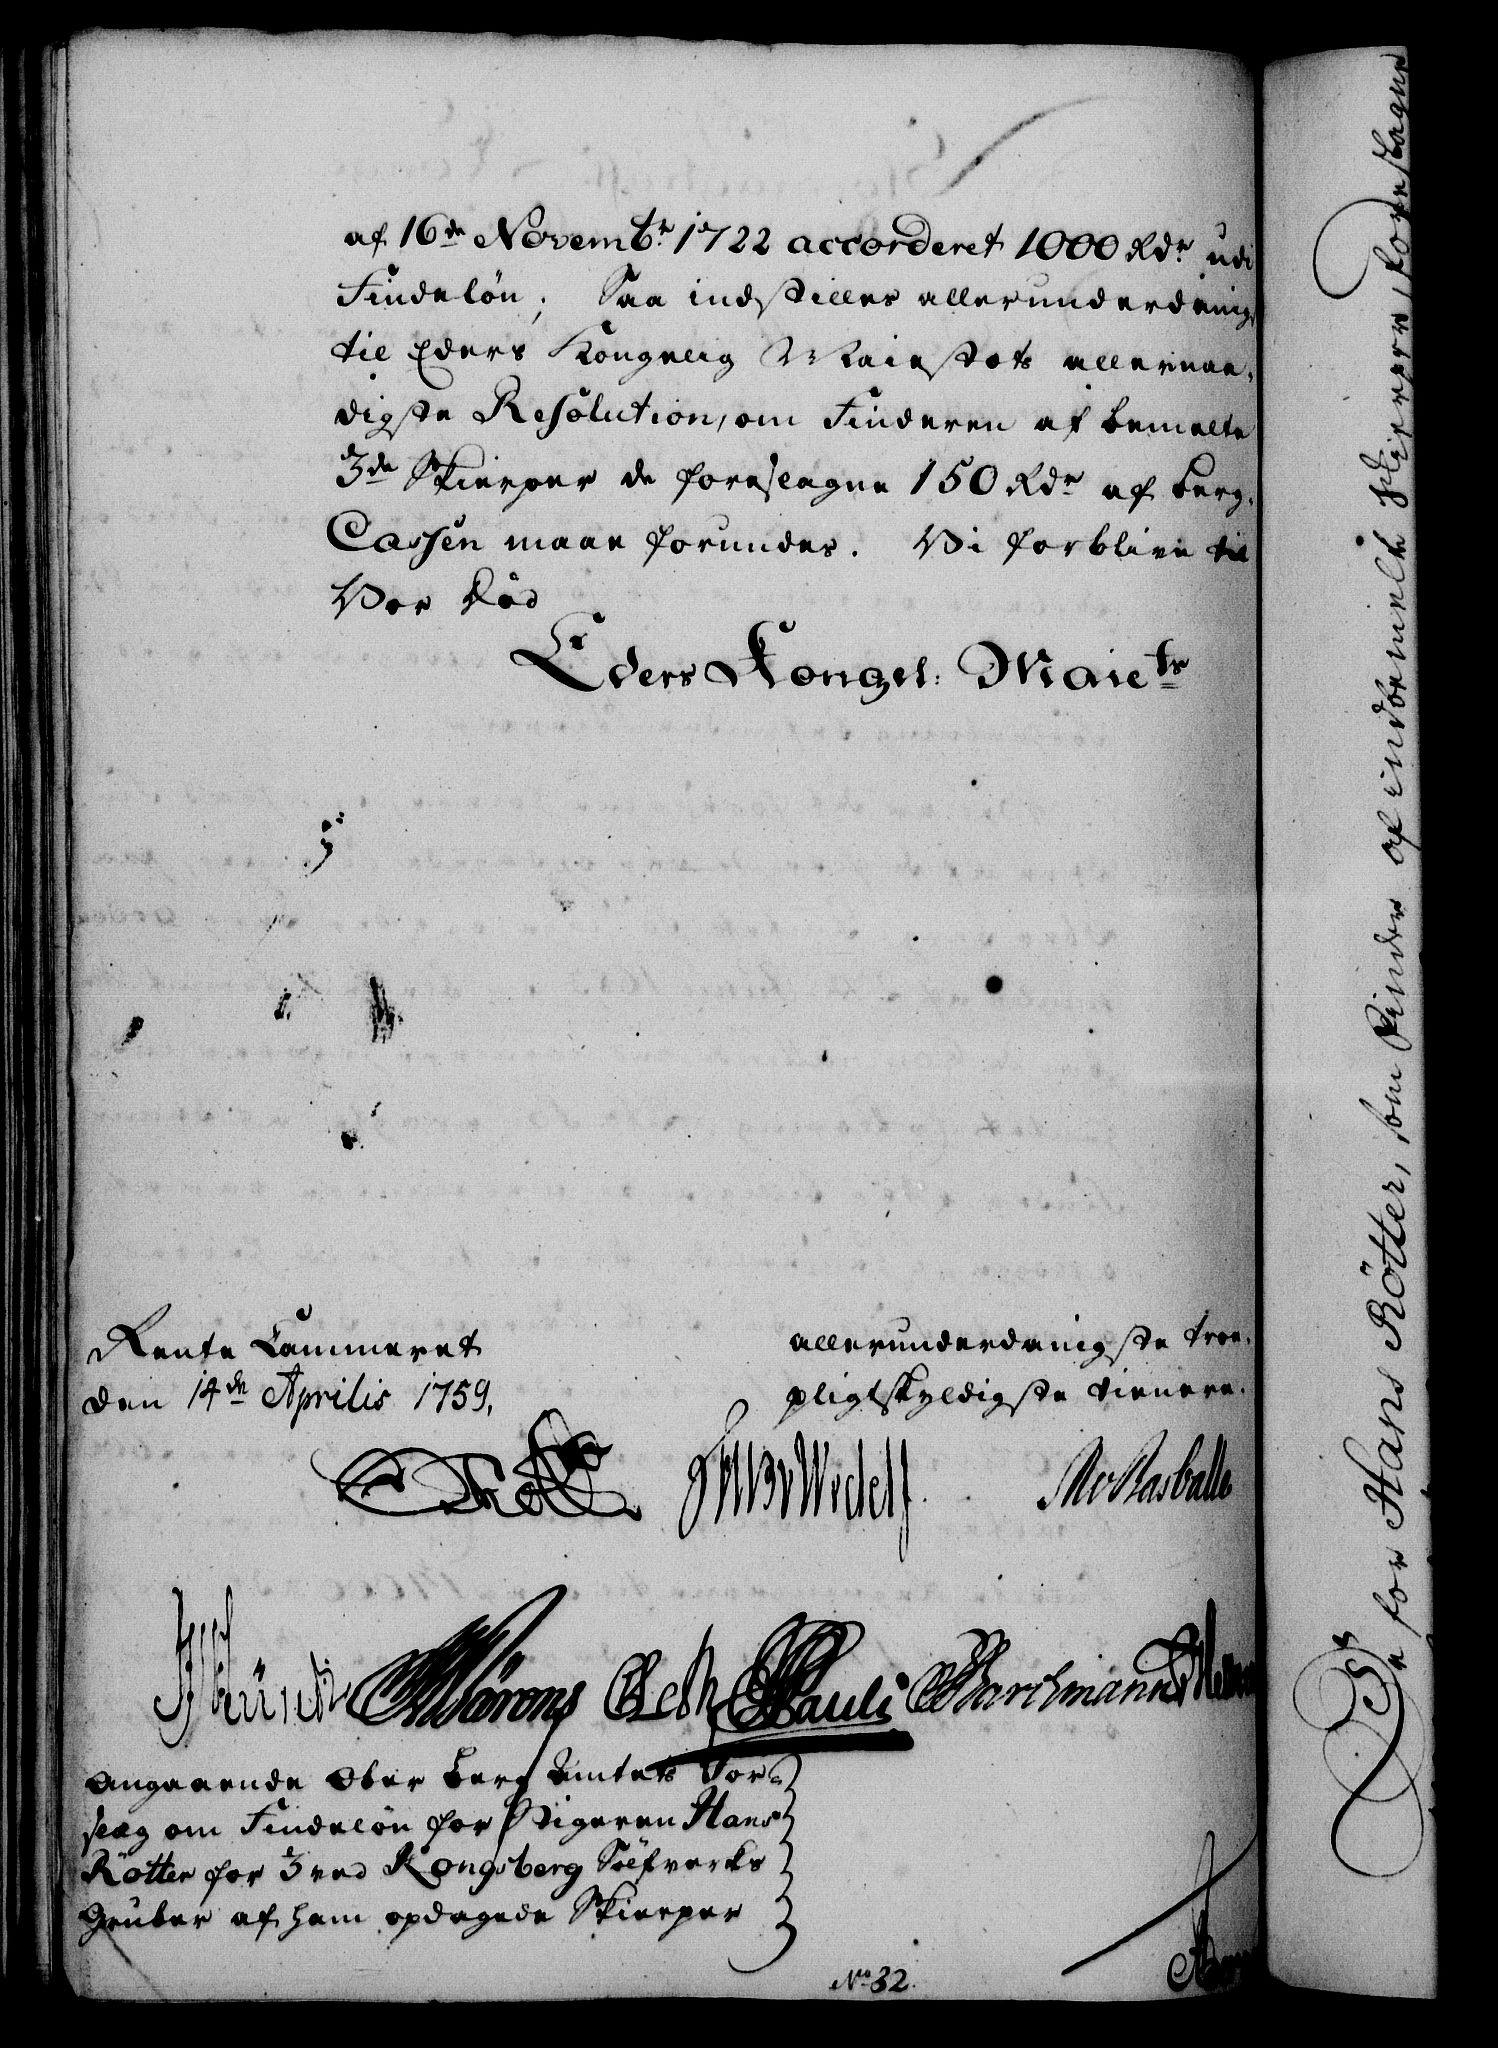 af 16de Novembr 1722 accorderet 1000 Rdr udi
Findeløn; Saa indstilles allerunderdanigst
til Eders Kongelig Maiestets allernaa-
digste Resolution, om Finderen af bemelte
3de Skierper de foreslagne 150 Rdr af Berg-
Cassen maae forundes. Vi forblive til
Vor Død
Eders Kongel: Maiets
Rente Cammeret
den 14de Aprilis 1759.
allerunderdanigste troe-
pligtskyldigste tienere.
Holst
Wedell
Rasballe
Münch Pauli Barchmann
Angaaende Ober Berg Amtets For-
slag om Findeløn for Stigeren Hans
Rötter for 3 ved Kongsberg Sølfverks
Gruber af ham opdagede Skierper
No 32.
De for Hans Rötter, som Finder af indbemelte Skierper, foreslagne